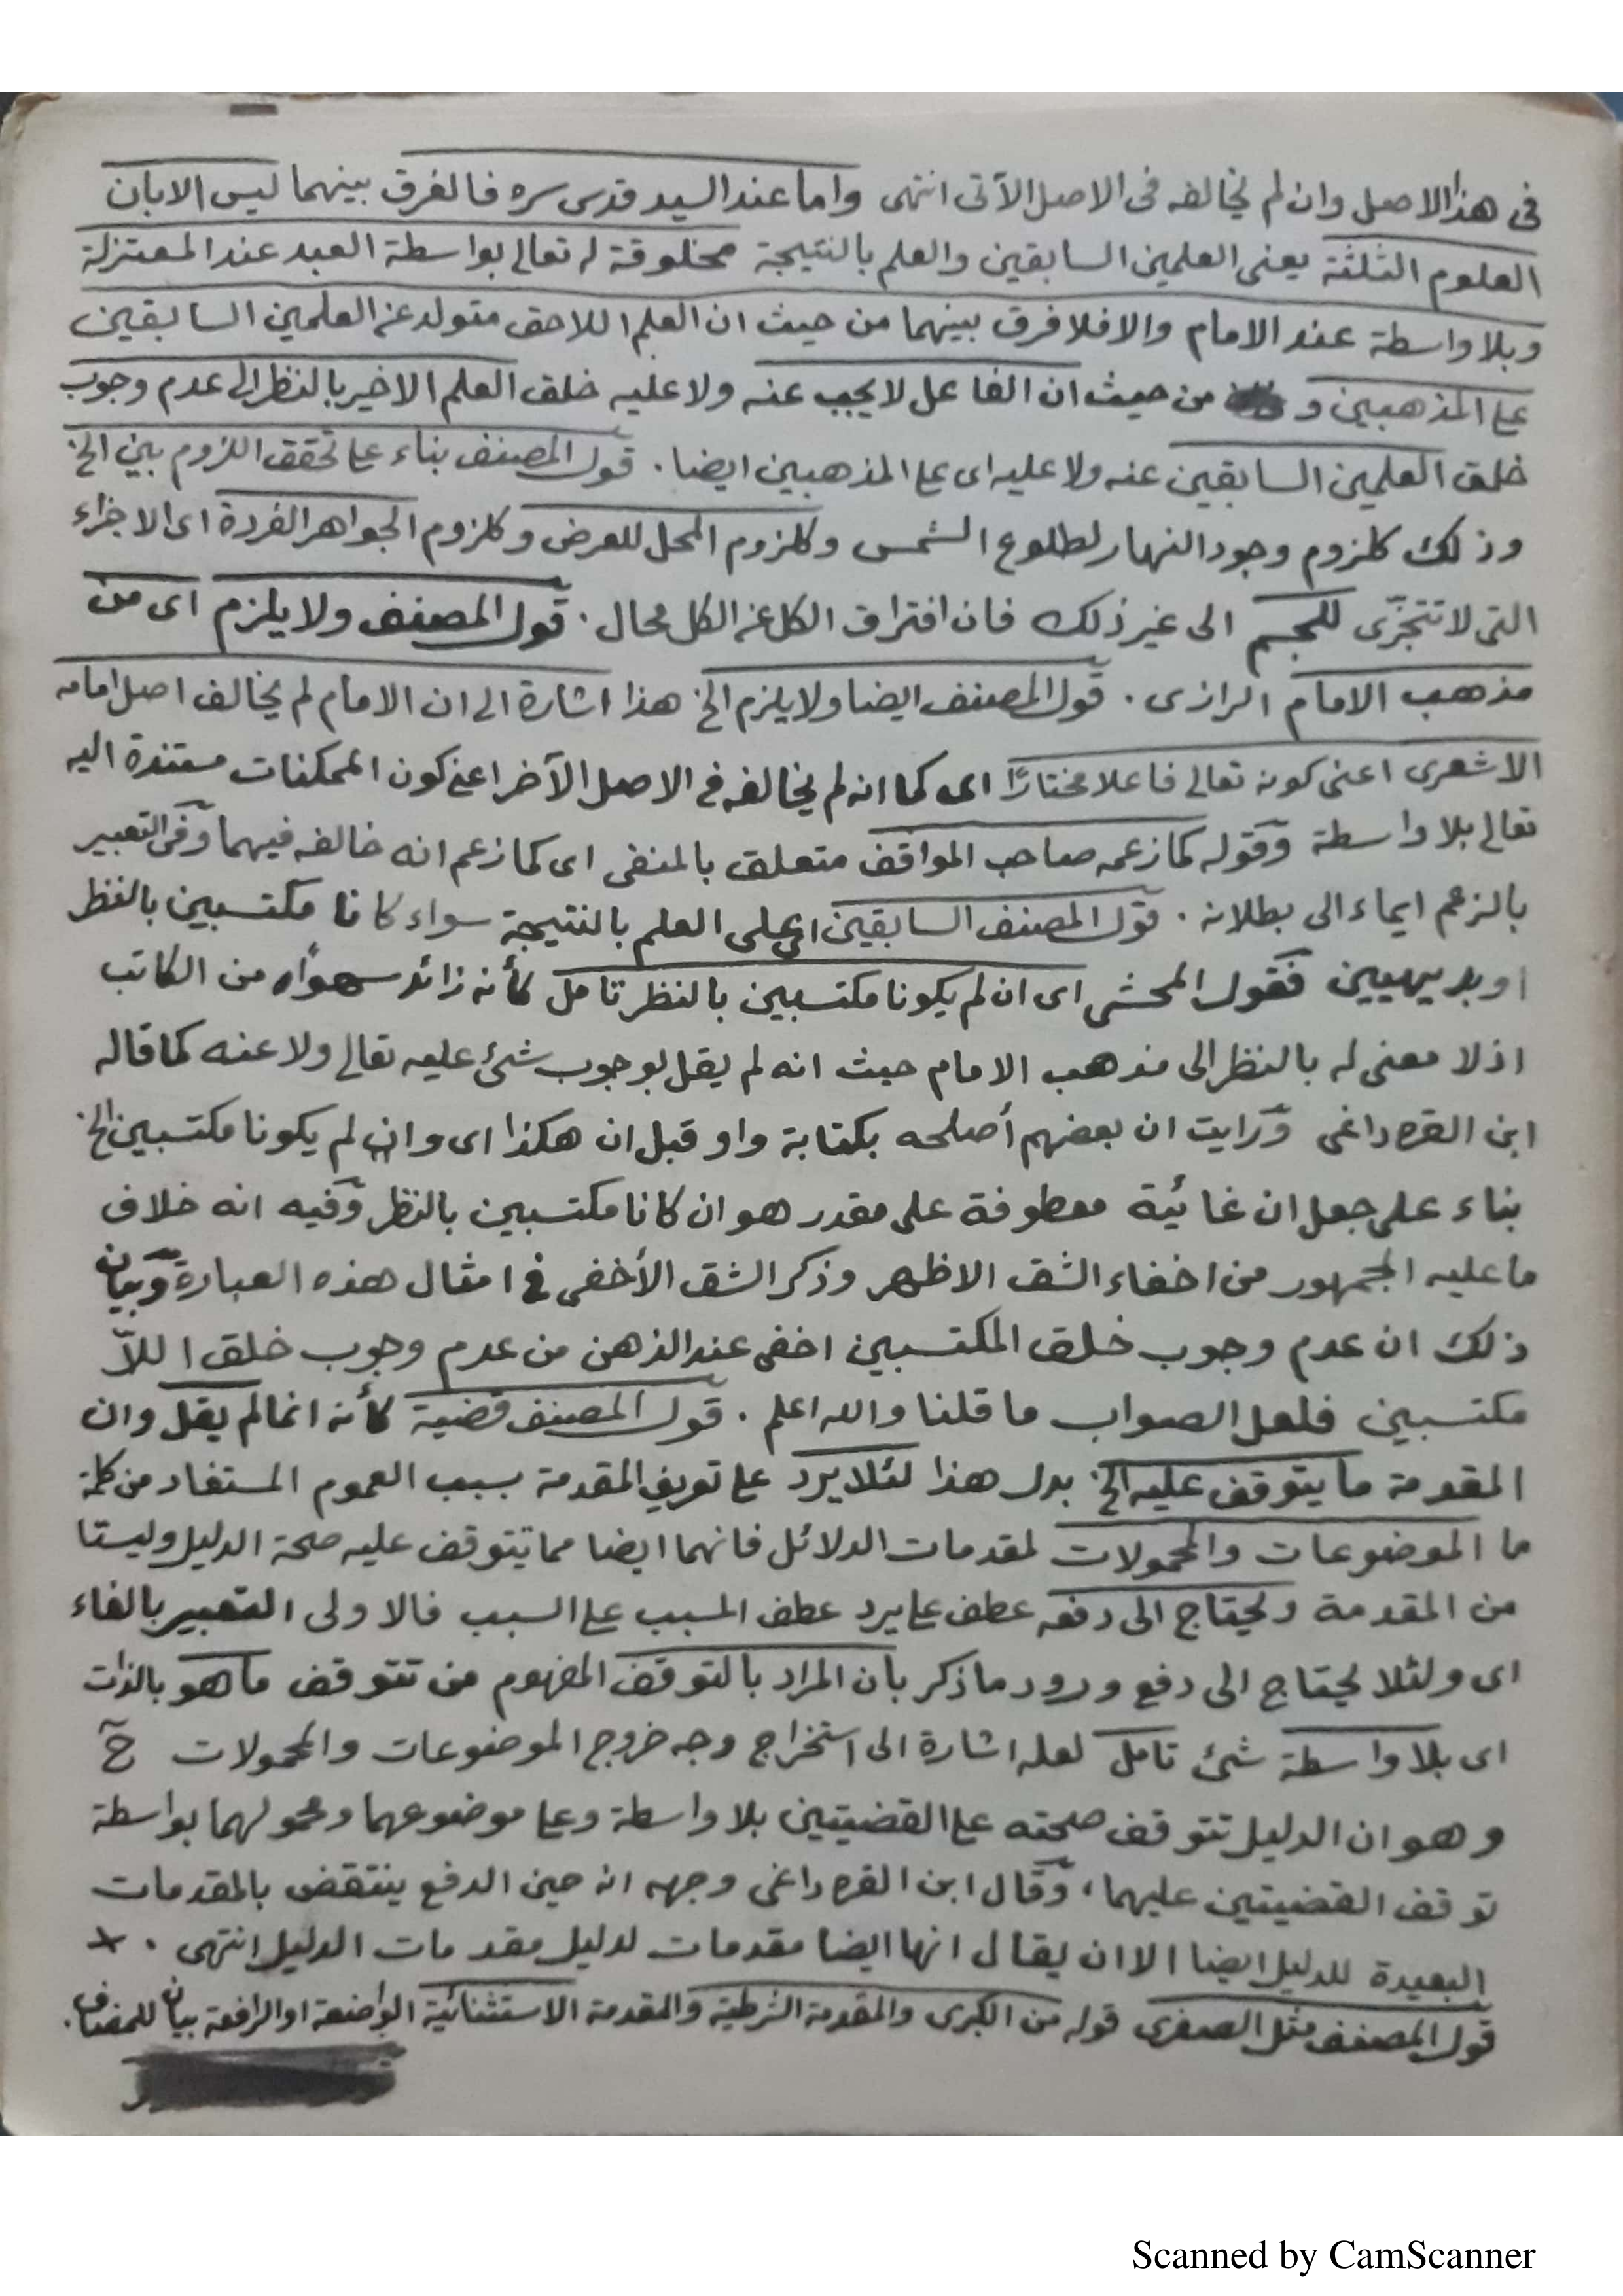 فى هذا الاصل وان لم يخالفه فى الاصل الآتى انتهى واما عند السيد قدس سره فالفرق بينهما ليس الا بان
العلوم الثلثة يعنى العلمين السابقين والعلم بالنتيجة مخلوقة له تعالى بواسطة العبد عند المعتزلة
وبلا واسطة عند الامام والا فلا فرق بينهما من حيث ان العلم اللاحق متولد عن العلمين السابقين
على المذهبين و من حيث ان الفاعل لا يجب عنه ولا عليه خلق العلم الاخير بالنظر الى عدم وجوب
خلق العلمين السابقين عنه ولا عليه اى على المذهبين ايضا . قول المصنف بناء على تحقق اللزوم بين الخ
وذلك كلزوم وجود النهار لطلوع الشمس وكلزوم المحل للعرض وكلزوم الجواهر الفردة اى الاجزاء
التى لا تتجزى للجسم الى غير ذلك فان افتراق الكل عن الكل محال . قول المصنف ولا يلزم اى من
مذهب الامام الرازى . قول المصنف ايضا ولا يلزم الخ هذا اشارة الى ان الامام لم يخالف اصل امامه
الاشعرى اعنى كونه تعالى فاعلا مختارًا اى كما انه لم يخالفه فى الاصل الآخر اعنى كون الممكنات مستندة اليه
تعالى بلا واسطة وقوله كما زعمه صاحب المواقف متعلق بالمنفى اى كما زعم انه خالفه فيهما وفى التعبير
بالزعم ايماء الى بطلانه . قول المصنف السابقين اى على العلم بالنتيجة سواء كانا مكتسبين بالنظر
او بديهيين فقول المحشى اى ان لم يكونا مكتسبين بالنظر تامل كأنه زائد سهوًا من الكاتب
اذ لا معنى له بالنظر الى مذهب الامام حيث انه لم يقل بوجوب شئ عليه تعالى ولا عنه كما قاله
ابن القره داغى ورايت ان بعضهم أصلحه بكتابة واو قبل ان هكذا اى وان لم يكونا مكتسبين الخ
بناء على جعل ان غائية معطوفة على مقدر هو ان كانا مكتسبين بالنظر وفيه انه خلاف
ما عليه الجمهور من اخفاء الشق الاظهر وذكر الشق الأخفى فى امثال هذه العبارة وبيان
ذلك ان عدم وجوب خلق المكتسبين اخفى عند الذهن من عدم وجوب خلق اللاّ
مكتسبين فلعل الصواب ما قلنا والله اعلم . قول المصنف قضية كأنه انما لم يقل وان
المقدمة ما يتوقف عليه الخ بدل هذا لئلا يرد على تعريف المقدمة بسبب العموم المستفاد من كلمة
ما الموضوعات والمحمولات لمقدمات الدلائل فانهما ايضا مما يتوقف عليه صحة الدليل وليستا
من المقدمة ويحتاج الى دفعه عطف على يرد عطف المسبب على السبب فالاولى التعبير بالفاء
اى ولئلا يحتاج الى دفع ورود ما ذكر بأن المراد بالتوقف المفهوم من تتوقف ما هو بالذات
اى بلا واسطة شئ تامل لعله اشارة الى استخراج وجه خروج الموضوعات والمحمولات ح
وهو ان الدليل تتوقف صحته على القضيتين بلا واسطة وعلى موضوعهما ومحمولهما بواسطة
توقف القضيتين عليهما ، وقال ابن القره داغى وجهه انه حين الدفع ينتقض بالمقدمات
البعيدة للدليل ايضا الا ان يقال انها ايضا مقدمات لدليل مقدمات الدليل انتهى .
قول المصنف مثل الصغرى قوله من الكبرى والمقدمة الشرطية والمقدمة الاستثنائية الواضعة او الرافعة بيان للمضاف .
Scanned by CamScanner